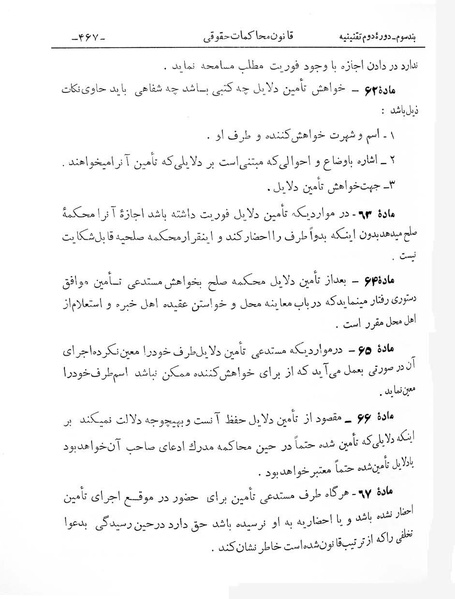 بند سوم ـ دورهٔ دوم تقنینیه قانون محاکمات حقوقی ـ ۴۶۷ ـ
ندارد در دادن اجازه با وجود فوریت مطلب مسامحه نماید .
مادهٔ ۶۲ ـ خواهش تأمین دلایل چه کتبی باشد چه شفاهی باید حاوی نکات
ذیل باشد :
۱ ـ اسم و شهرت خواهش کننده و طرف او .
۲ ـ اشاره باوضاع و احوالی که مبتنی است بر دلایلی که تأمین آنرا میخواهند .
۳ـ جهت خواهش تأمین دلایل .
مادهٔ ۶۳ ـ در مواردیکه تأمین دلایل فوریت داشته باشد اجازهٔ آنرا محکمهٔ
صلح میدهد بدون اینکه بدواً طرف را احضار کند و اینقرار محکمه صلحیه قابل شکایت
نیست .
مادهٔ ۶۴ ـ بعد از تأمین دلایل محکمه صلح بخواهش مستدعی تأمین موافق
دستوری رفتار مینماید که در باب معاینه محل و خواستن عقیده اهل خبره و استعلام از
اهل محل مقرر است .
مادهٔ ۶۵ ـ درمواردیکه مستدعی تأمین دلایل طرف خود را معین نکرده اجرای
آن در صورتی بعمل می‌آید که از برای خواهش کننده ممکن نباشد اسم طرف خود را
معین نماید .
مادهٔ ۶۶ ـ مقصود از تأمین دلایل حفظ آنست و بهیچوجه دلالت نمیکند بر
اینکه دلایلی که تأمین شده حتماً در حین محاکمه مدرك ادعای صاحب آن خواهد بود
یا دلایل تأمین شده حتماً معتبر خواهد بود .
مادهٔ ۶۷ ـ هرگاه طرف مستدعی تأمین برای حضور در موقع اجرای تأمین
احضار نشده باشد و یا احضاریه به او نرسیده باشد حق دارد درحین رسیدگی بدعوا
تخلفی را که از ترتیب قانون شده است خاطر نشان کند .